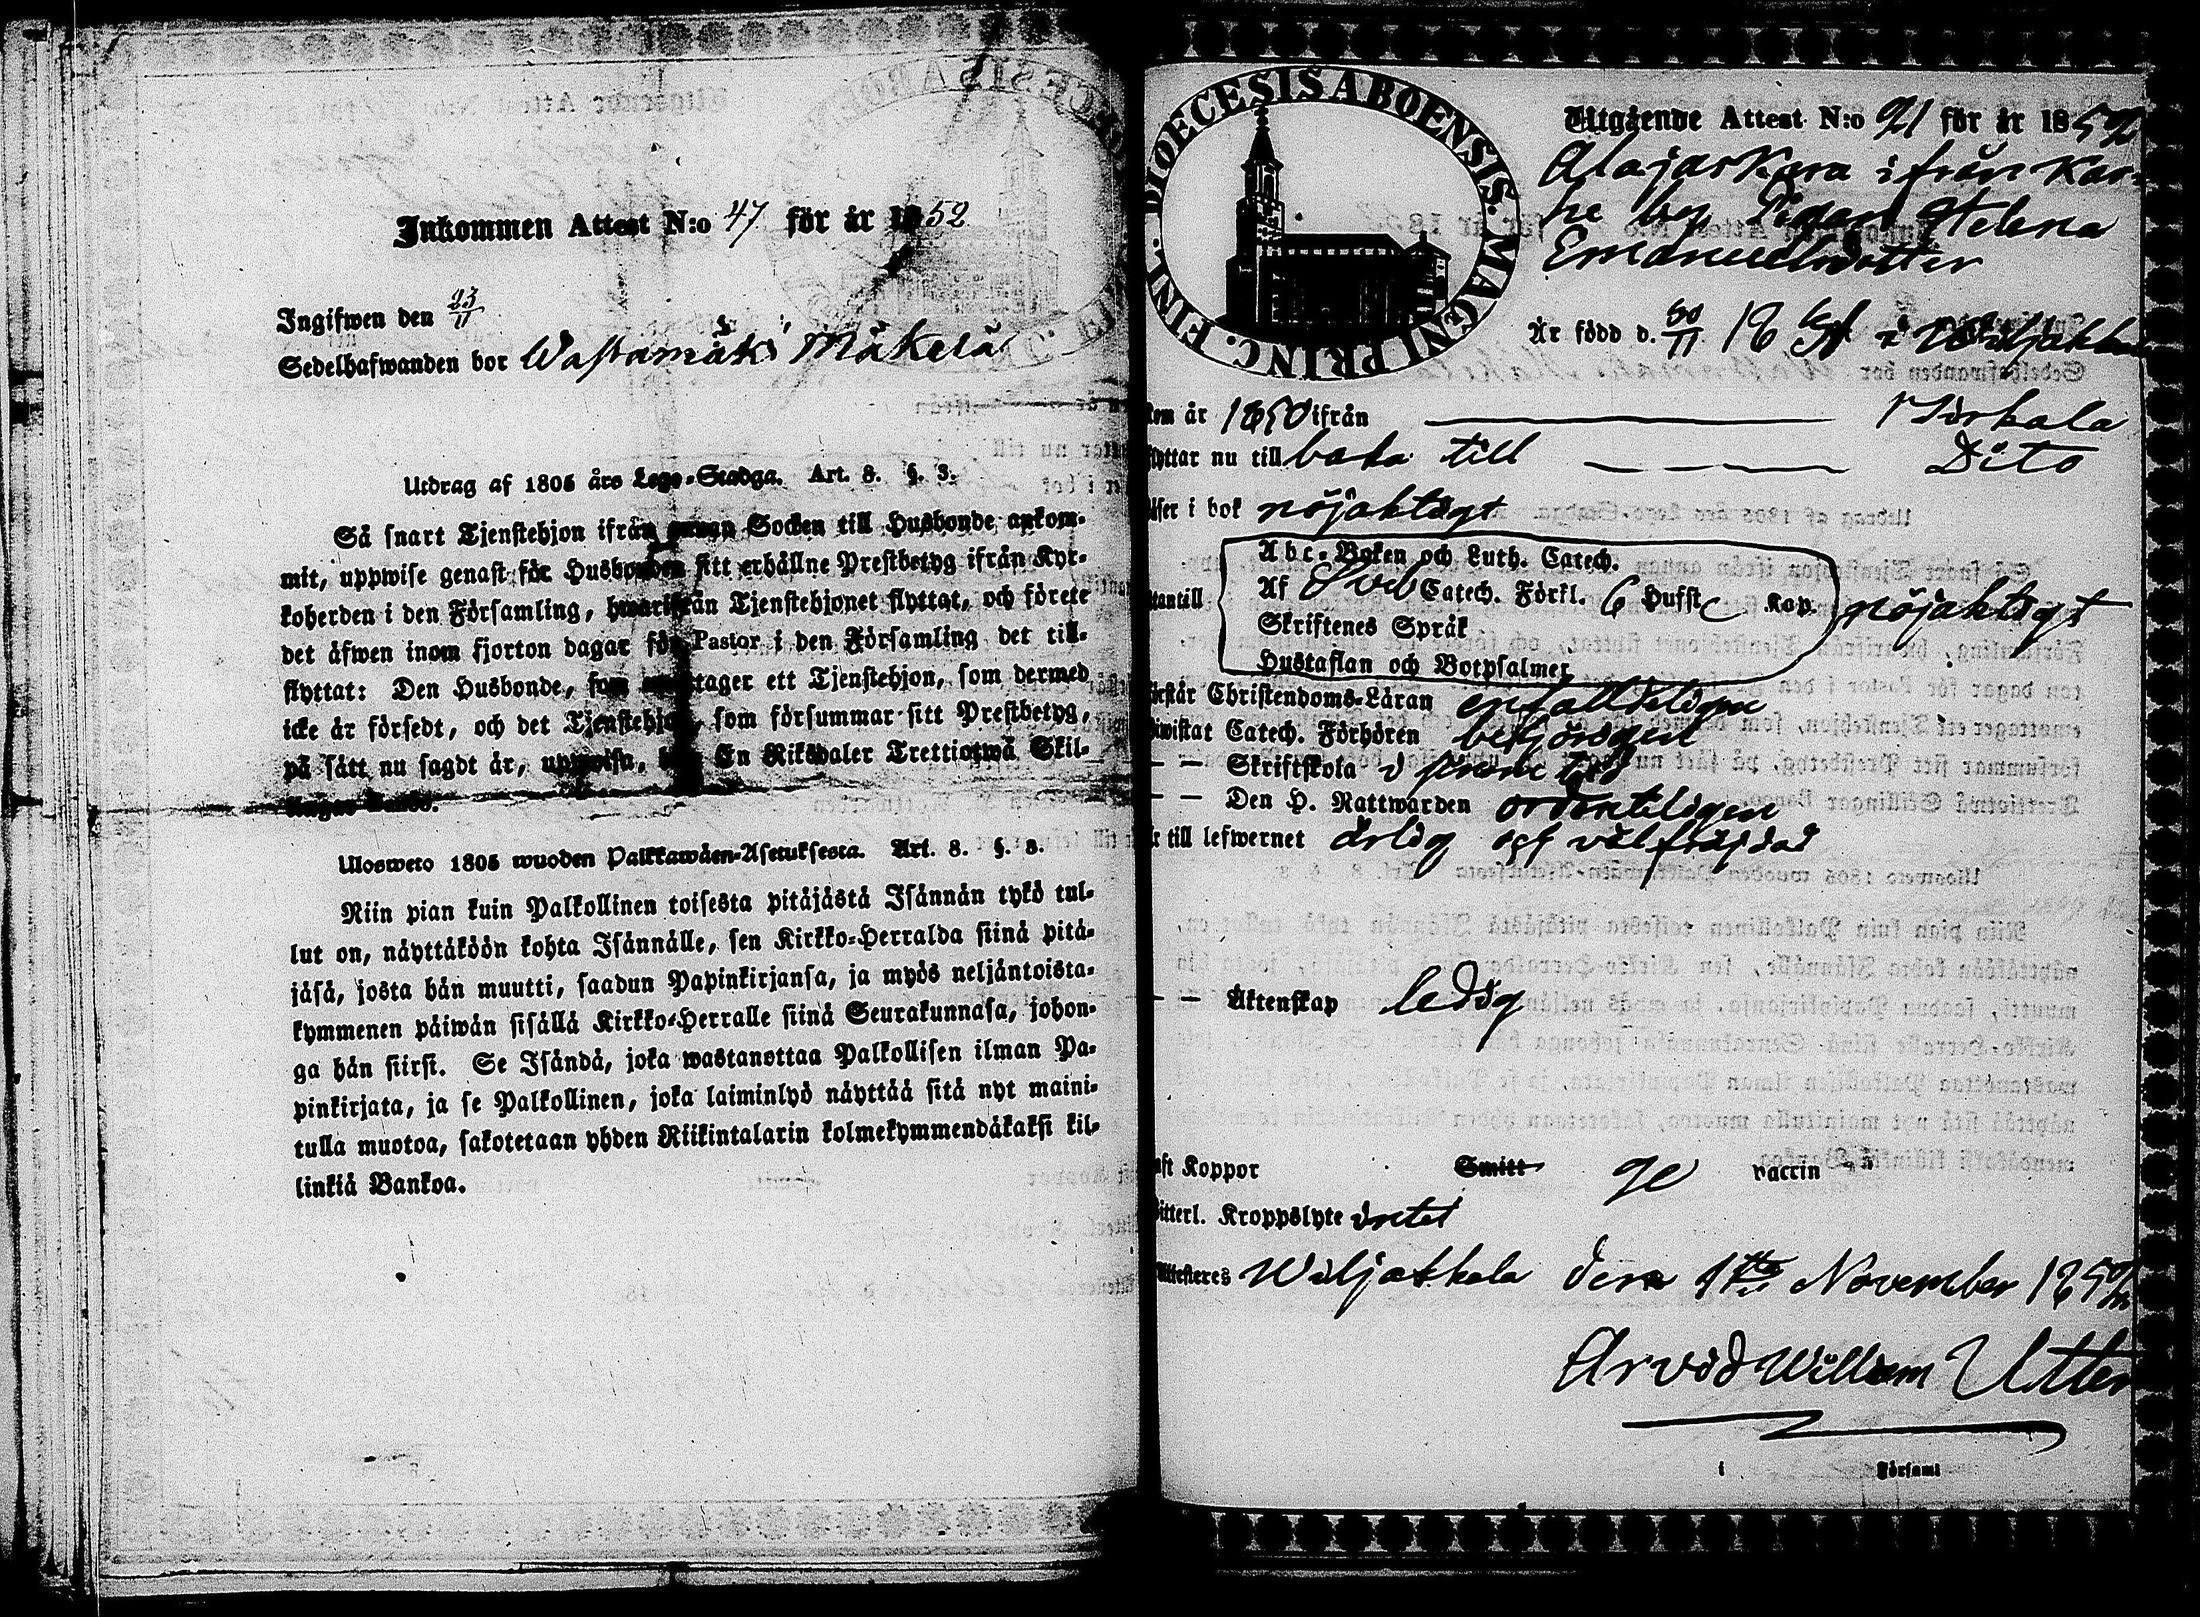 Inkommen Attest N:o 47 för år 1852
Ingifwen den 23/11
Sedelhafwanden bor Wastamäki Mäkelä
Utdrag af 1805 års Lego-Stadga. Art. 8. §. 3.
Så snart Tjenstehjon ifrån annan Socken till Husbonde ankom-
mit, uppwise genast för Husbonden sitt erhållne Prestbetyg ifrån Kyr-
koherden i den Församling, hwarifrån Tjenstehjonet flyttat, och förete
det äfwen inom fjorton dagar för Pastor i den Församling det till-
flyttat: Den Husbonde, som tager ett Tjenstehjon, som dermed
icke är försedt, och det Tjenstehjon, som försummar sitt Prestbetyg,
på sätt nu sagdt är, uppwisa, En Riksdaler Trettiotwå Skil-
lingar Banco.
Ulosweto 1805 wuoden Palkkawäen-Asetuksesta. Art. 8. §. 3.
Niin pian kuin Palkollinen toisesta pitäjästä Isännän tykö tul-
lut on, näyttäköön kohta Isännälle, sen Kirkko-Herralda siinä pitä-
jäsä, josta hän muutti, saadun Papinkirjansa, ja myös neljäntoista-
kymmenen päiwän sisällä Kirkko-Herralle siinä Seurakunnasa, johon-
ga hän siirsi. Se Isändä, joka wastanottaa Palkollisen ilman Pa-
pinkirjata, ja se Palkollinen, joka laiminlyö näyttää sitä nyt maini-
tulla muotoa, sakotetaan yhden Riikintalarin kolmekymmendäkaksi kil-
linkiä Bankoa.
DIOECESIS ABOENSIS. MAGNI PRINC. FINL.
Utgående Attest N:o 21 för år 1852
Alajaskara ifrån Kar-
he by Pigan Helena
Emanuelsdotter
Är född d. 30/11 18 i Wiljakkala
kom år 1850 ifrån Kirkala
flyttar nu till baka till Dito
läser i bok nöjaktigt
utantill
Abc-Boken och Luth. Catech.
Af Sveb Catech. Förkl. 6 Hufst Kap.
Skriftenes Språk
Hustaflan och Botpsalmer
nöjaktigt
förstår Christendoms-Läran enfalldeligen
bewistat Catech. Förhören behörigen
— — Skriftskola i sinom tid
— — Den H. Nattwarden ordenteligen
är till lefwernet ärlig och välfräjdad
— — Äktenskap ledig
haft Koppor Smitt ge vaccin
Witterl. Kroppslyte intet
Attesteres Wiljakkala den 1sta November 1852
Arvid Willem Utter
i Församl